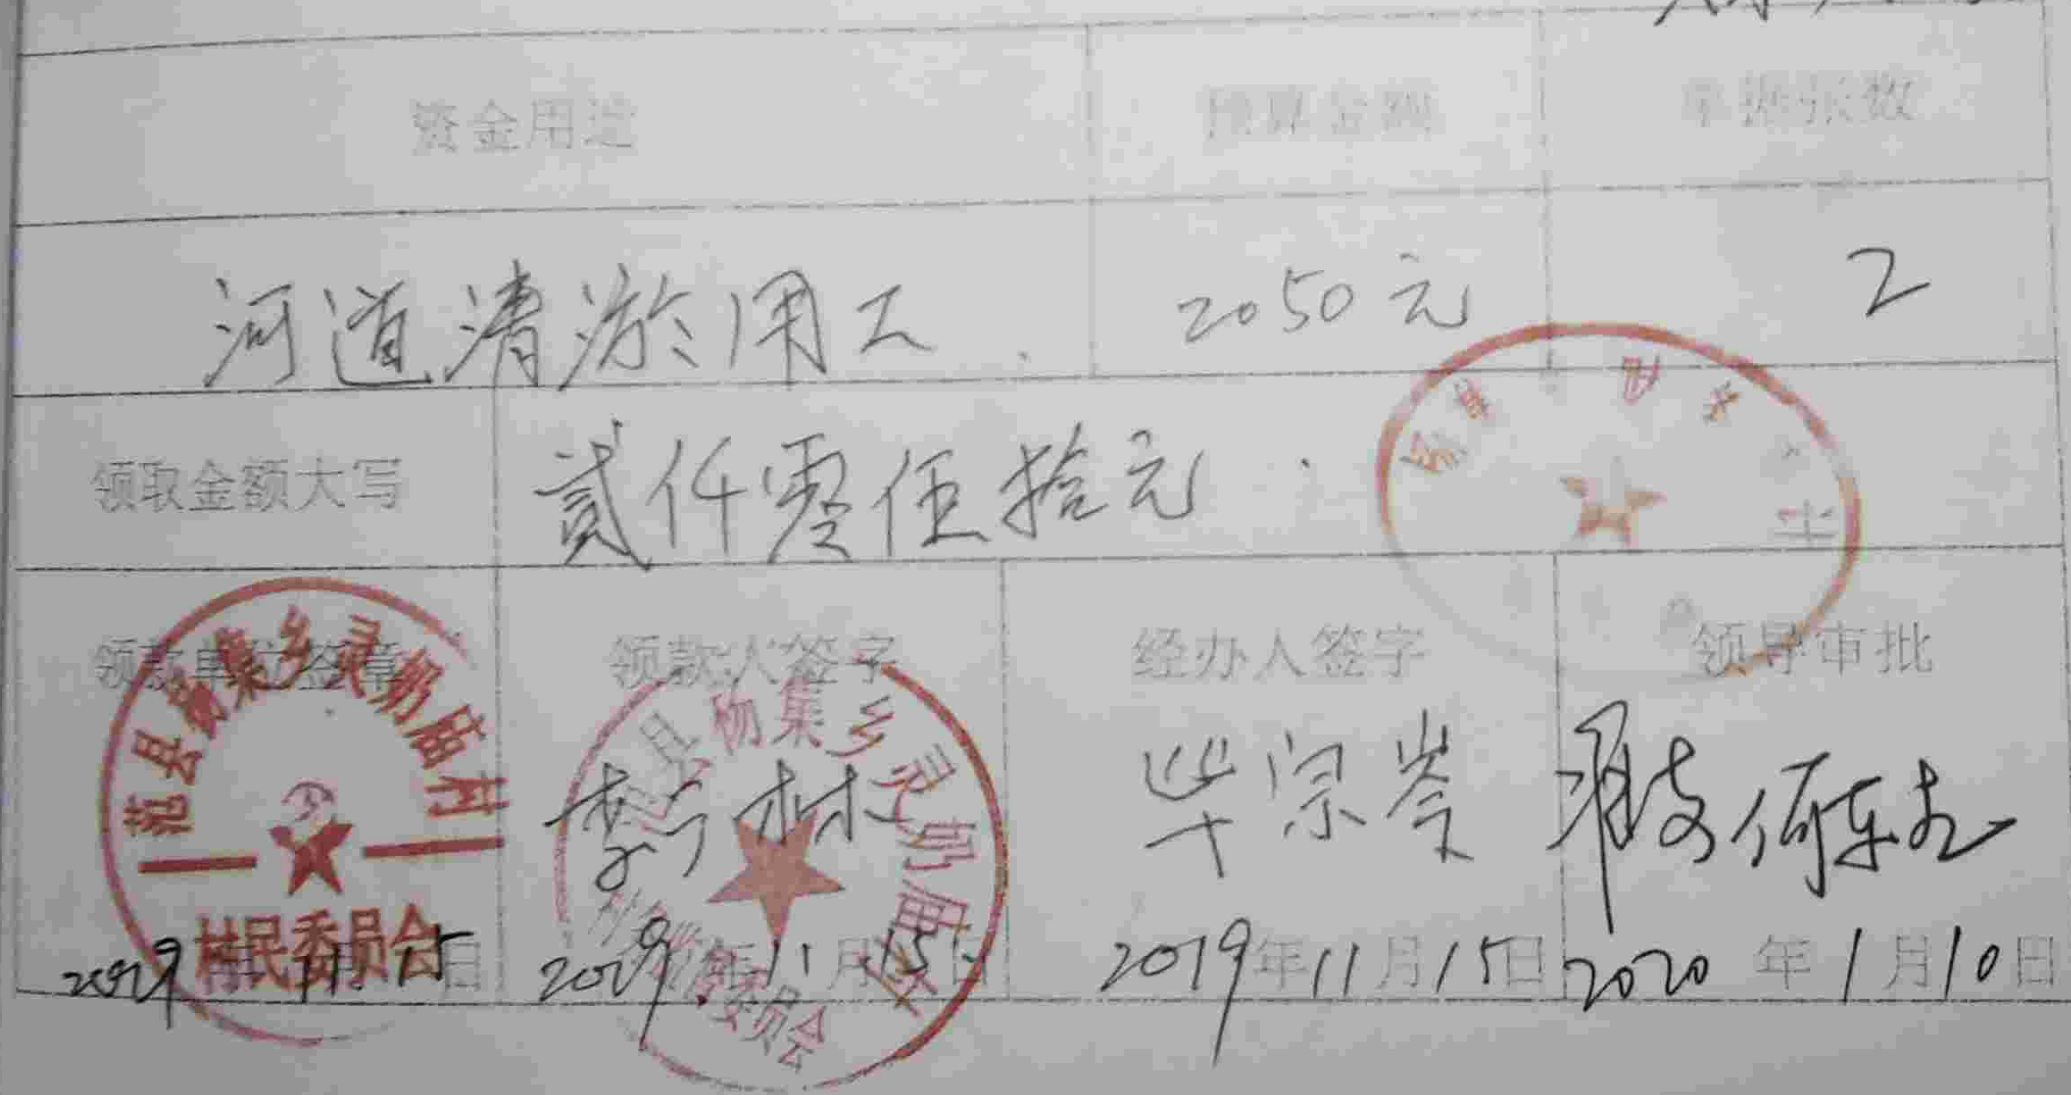 资金用途 预算金额 单据张数
河道清淤用工 2050元 2
领取金额大写 贰仟零伍拾元
领款单位签章 领款人签字 经办人签字 领导审批
范县杨集乡灵奶庙村
村民委员会
县杨集乡灵奶庙村
委员会
毕宗岑
2019年11月15日 2019年11月15日 2019年11月15日 2020年1月10日